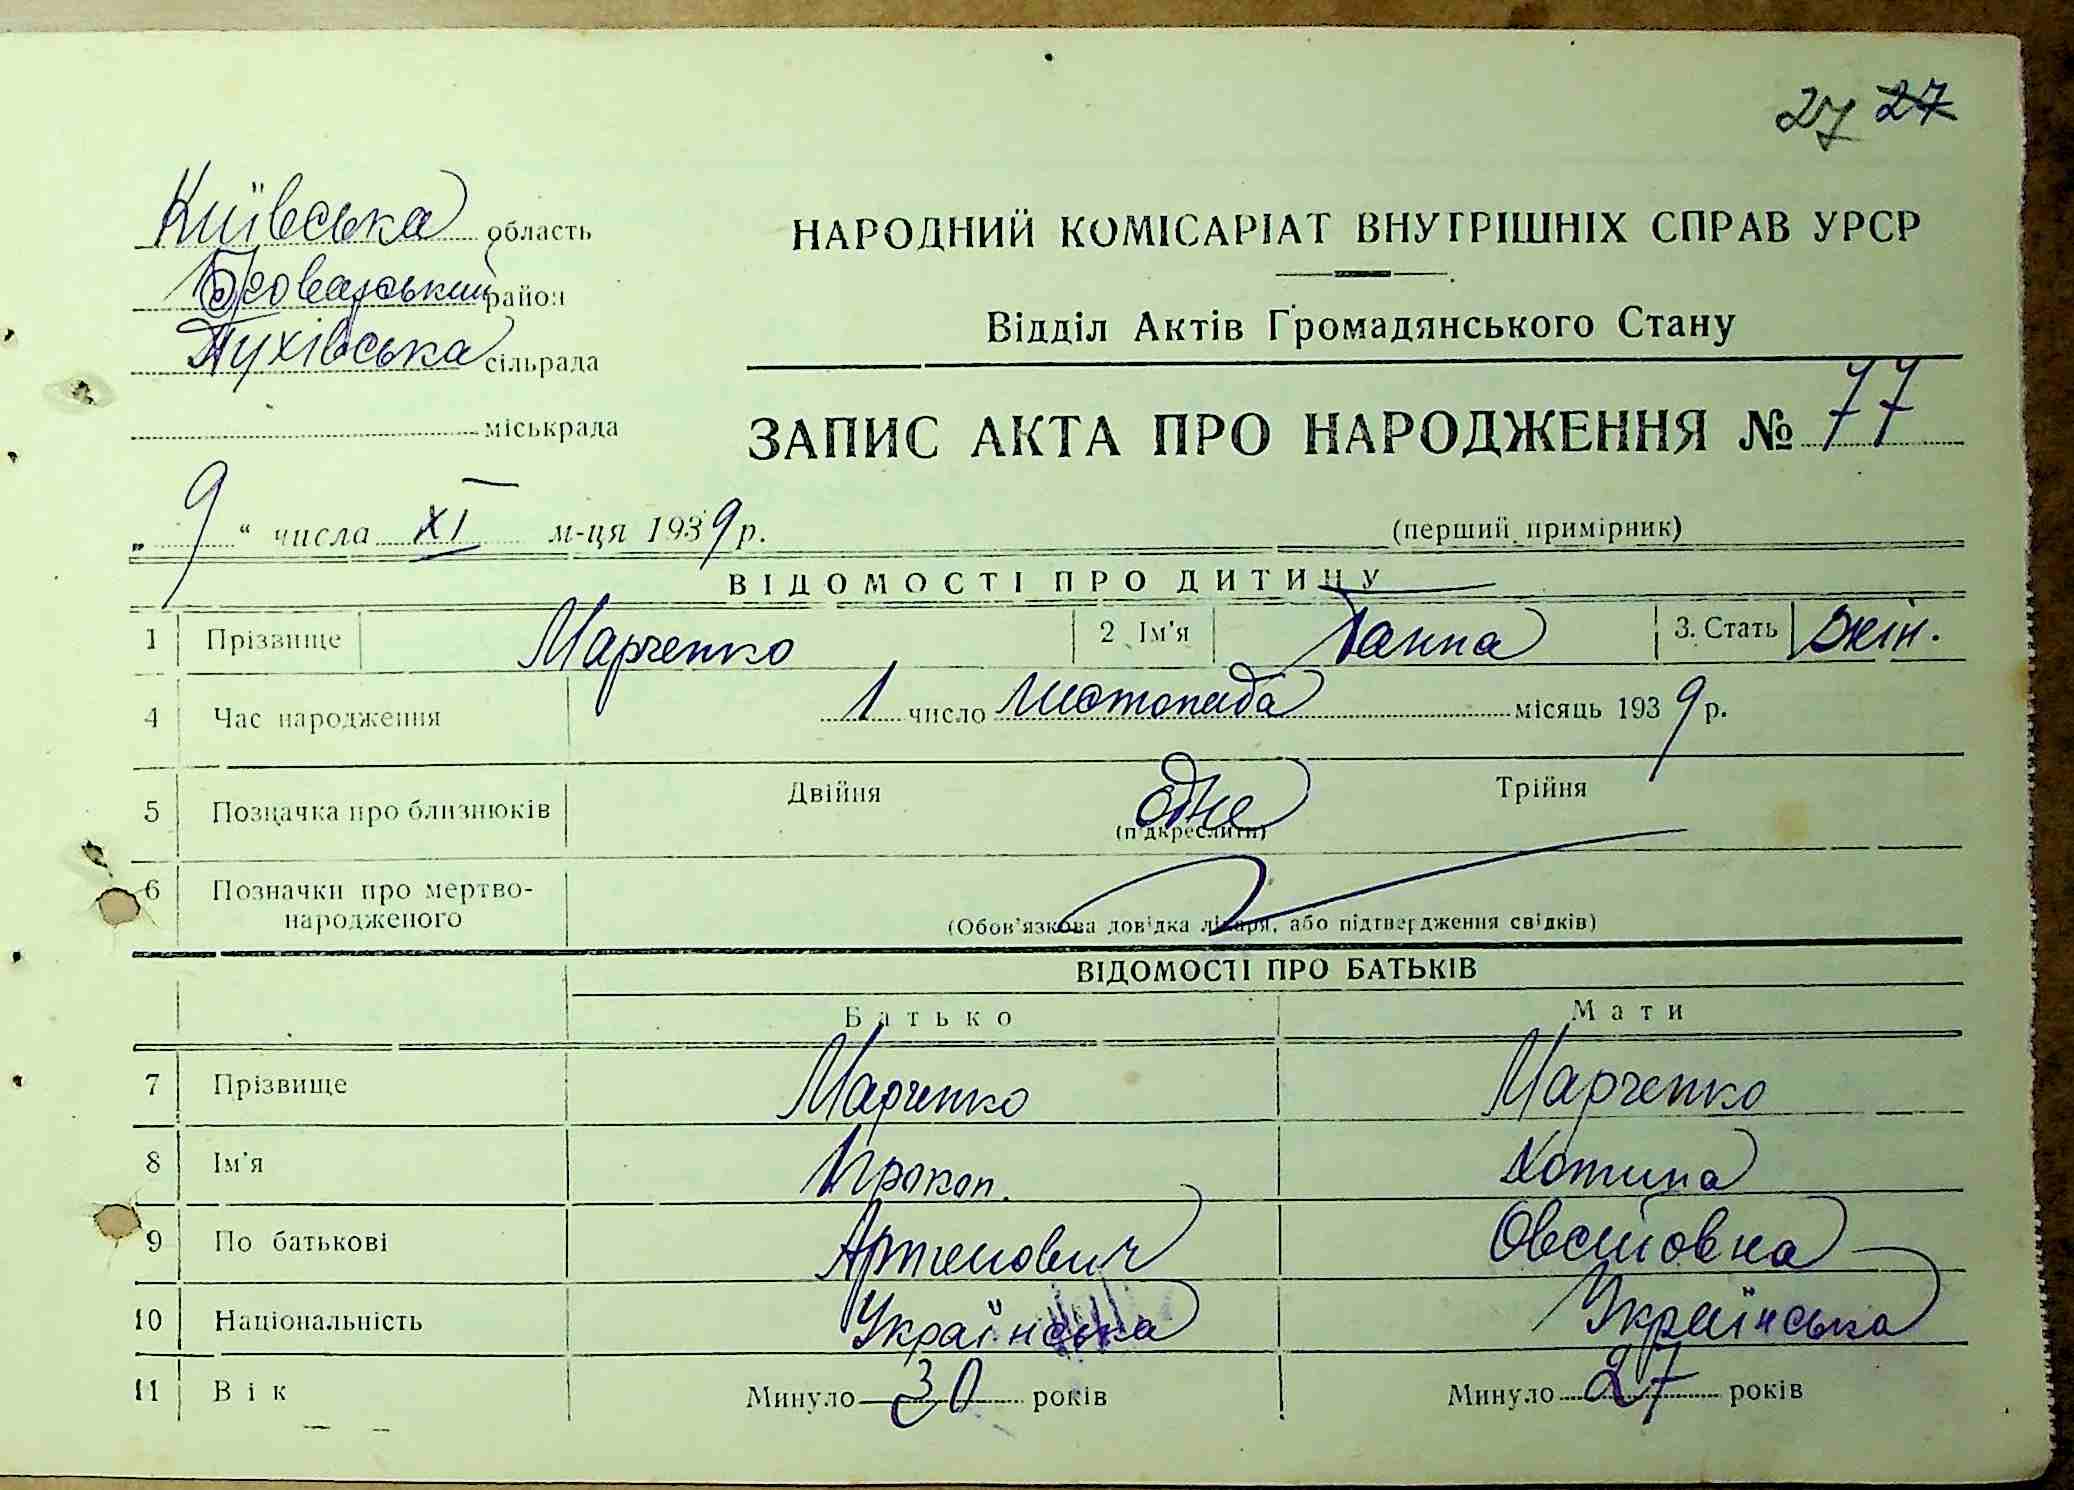 27 27
Київська область
Броварський район
Пухівська сільрада
міськрада
НАРОДНИЙ КОМІСАРІАТ ВНУТРІШНІХ СПРАВ УРСР
Відділ Актів Громадянського Стану
ЗАПИС АКТА ПРО НАРОДЖЕННЯ № 77
„ 9 “ числа XI м-ця 1939 р.
(перший примірник)
ВІДОМОСТІ ПРО ДИТИНУ
1 Прізвище Марченко 2 Ім'я Ганна 3. Стать Жін.
4 Час народження 1 число листопада місяць 1939 р.
5 Позначка про близнюків Двійня одне Трійня
(підкреслити)
6 Позначки про мертво-
народженого
(Обов'язкова довідка лікаря, або підтвердження свідків)
ВІДОМОСТІ ПРО БАТЬКІВ
Батько Мати
7 Прізвище Марченко Марченко
8 Ім'я Прокоп. Хотина
9 По батькові Артемович Овсіївна
10 Національність Українська Українська
11 Вік Минуло 30 років Минуло 27 років